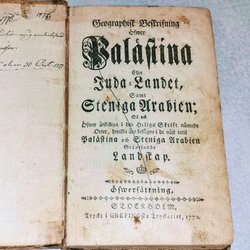 Geographisk Beskrifning
Öfwer
Palästina
Eller
Juda-Landet,
Samt
Steniga Arabien;
Så ock
Öfwer åtskillige i den Heliga Skrift nämnde
Orter, hwilka äro belägne i de näst intil
Palästina och Steniga Arabien
Gräntsande
Landskap.
Öfwersättning.
STOCKHOLM,
Tryckt i GREFINGSKA Tryckeriet, 1770.